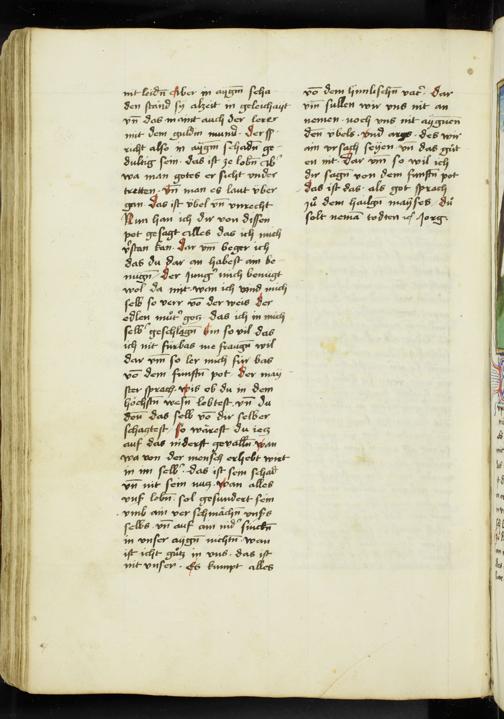 nit leidn̄ Aber in aygm̄ scha
den stand sy alzeit in geleichayt
vn̄ das maint auch der lerer
mit dem guldin mund. der ff
richt also in aygm̄ schadn̄ ge
dultig sein. das ist ze lobn̄
wa man gotes er sicht vnder
tretten. vn̄ man es laut vber
gan. das ist vbel vn̄ vnrecht
Nun han ich dir von dissen
pot gesagt alles das ich mich
v̄stan kan. dar vm̄ beger ich
das du dar an habest am be
nugn̄. der Jung mich benugt
wol da mit wan ich vind mich
selb so verr vō der weis der
edlen mut gotz das ich in mich
selb geschlagn̄ bin so vil das
ich nit fürbas me fragn̄ wil
dar vm̄ so ler mich für bas
vō dem funftn̄ pot der may
ster sprach wis ob du in dem
höchstn̄ wesn̄ lobtest. vn̄ du
den das selb vō dir selber
schagtest. so wärest du ietz
auf das niderst gevalln̄ wan
wa von der mensch erhebt wirt
in im selb. das ist sein schad
vn̄ nit sein nutz. wan alles
vnser lobn̄ sol gesundert sein
vmb ain verschmächn̄ vnsers
selbs vn̄ auf ain nid sinckn̄
in vnser aygn̄ nichtn̄. wan
ist icht gutz in vns. das ist
nit vnser. Es kumpt alles
vō dem himlischn̄ vat. dar
vm̄ sullen wir vns nit an
nemen noch vns nit aygnen
den vbels. vnd args. des wir
ain vrsach seyen vn̄ das gut
en nit. dar vm̄ so wil ich
dir sagn̄ von dem funftn̄ pot
das ist das. als got sprach
zu dem hailgn̄ mayses. du
solt neman todten Jorg